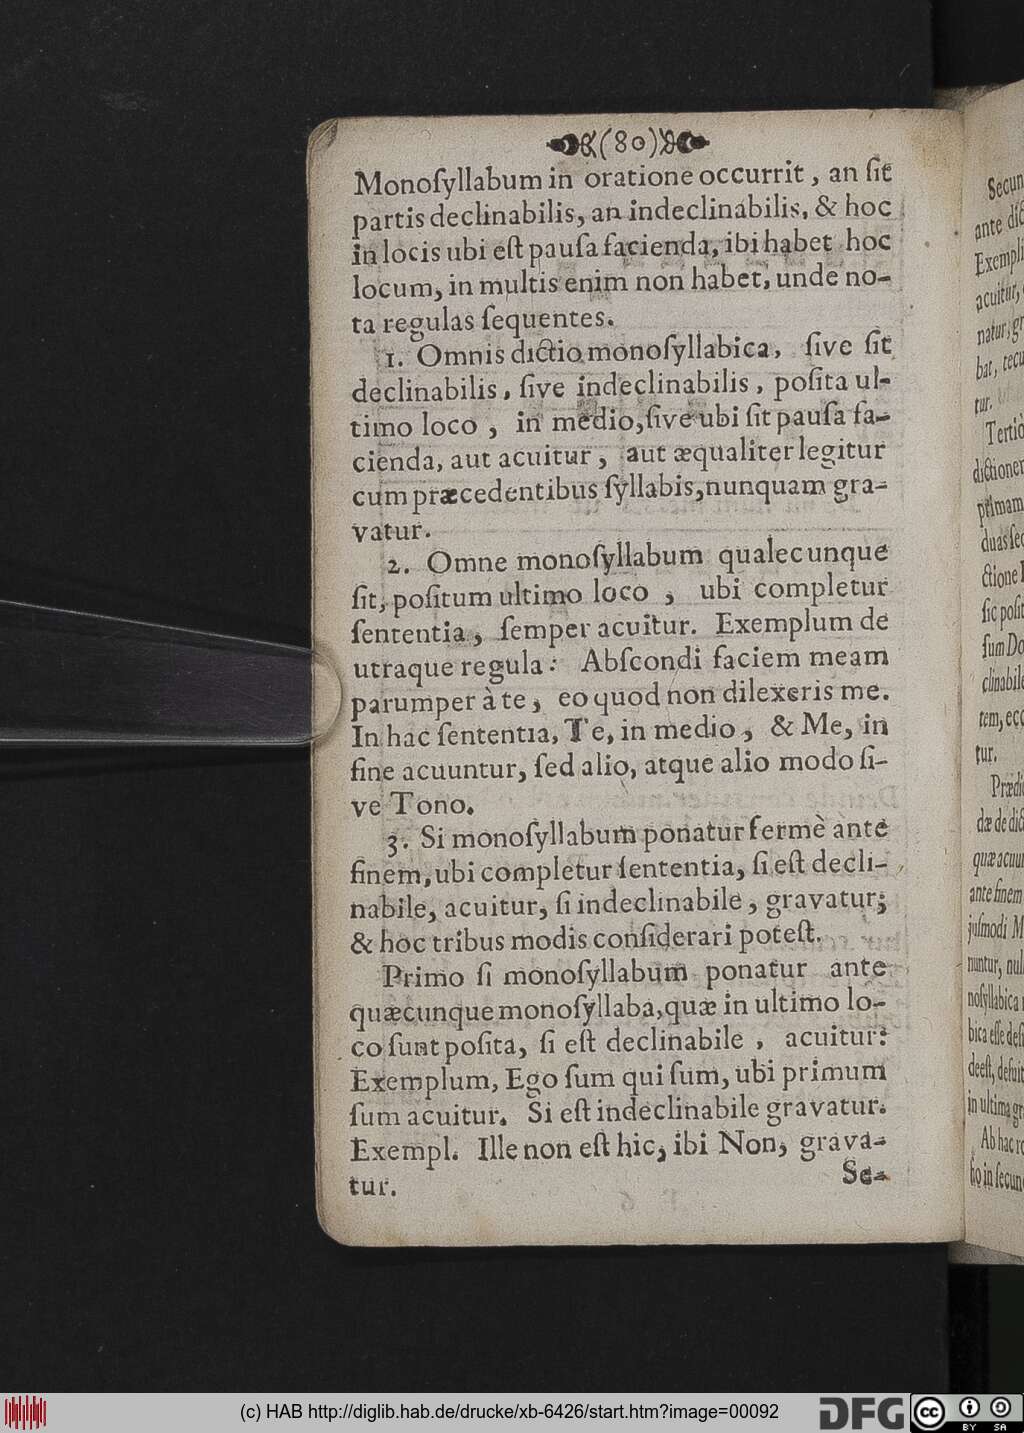 (80)
Monoſyllabum in oratione occurrit, an ſit
partis declinabilis, an indeclinabilis, & hoc
in locis ubi eſt pauſa facienda, ibi habet hoc
locum, in multis enim non habet, unde no-
ta regulas ſequentes.
1. Omnis dictio monoſyllabica, ſive ſit
declinabilis, ſive indeclinabilis, poſita ul-
timo loco, in medio, ſive ubi ſit pauſa fa-
cienda, aut acuitur, aut æqualiter legitur
cum præcedentibus ſyllabis, nunquam gra-
vatur.
2. Omne monoſyllabum qualecunque
ſit, poſitum ultimo loco, ubi completur
ſententia, ſemper acuitur. Exemplum de
utraque regula: Abſcondi faciem meam
parumper à te, eo quod non dilexeris me.
In hac ſententia, Te, in medio, & Me, in
fine acuuntur, ſed alio, atque alio modo ſi-
ve Tono.
3. Si monoſyllabum ponatur fermè ante
finem, ubi completur ſententia, ſi eſt decli-
nabile, acuitur, ſi indeclinabile, gravatur;
& hoc tribus modis conſiderari poteſt.
Primo ſi monoſyllabum ponatur ante
quæcunque monoſyllaba, quæ in ultimo lo-
co ſunt poſita, ſi eſt declinabile, acuitur:
Exemplum, Ego ſum qui ſum, ubi primum
ſum acuitur. Si eſt indeclinabile gravatur.
Exempl. Ille non eſt hic, ibi Non, grava-
tur.
Se-
Secun
ante dic
Exempli
acuitur,
natur, gr
bat, tecu
tur.
Tertiò
dictionem
primam
duas ſec
ctione
ſic poſit
ſum Do
clinabile
tem, ecc
tur.
Prædic
dæ de dic
quæ acuu
ante finem
juſmodi M
nuntur, nul
noſyllabica
bica eſſe de
deeſt, defuit
in ultima gr
Ab hac re
ho in ſecun
(c) HAB http://diglib.hab.de/drucke/xb-6426/start.htm?image=00092
DFG
cc BY SA